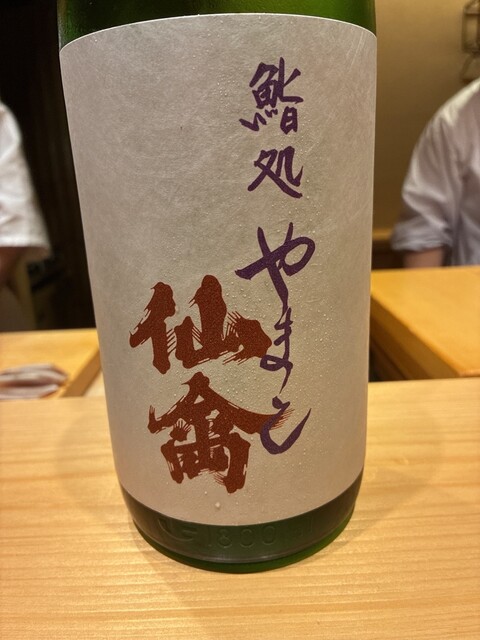 鮨処 やまと
仙禽
1800